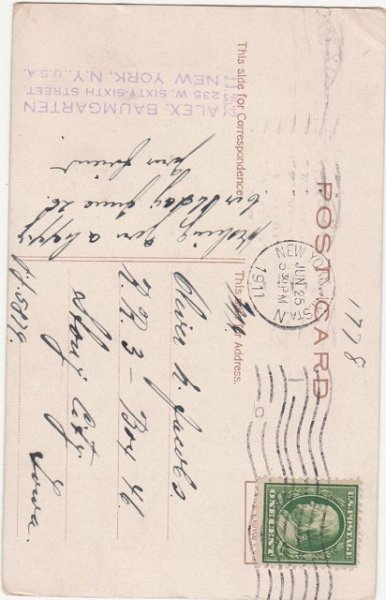 POST CARD
This side for Correspondence
This side for Address.
ALEX. BAUMGARTEN
235 W. SIXTY-SIXTH STREET.
NEW YORK, N.Y., U.S.A.
wishing you a happy
birthday June 28.
your friend
NEW YORK, N.Y.
STA. N
JUN 25
5 30 PM
1911
1778
Oliver K. Jacobs
R.R. 3 - Box 46
Story City
Iowa.
U.S. POSTAGE
ONE CENT